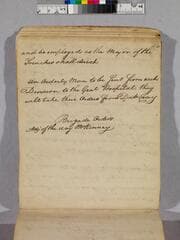 and be employed as the Major of the
Trenches shall direct
An Orderly Man to be Sent from each
Division to the Genl Hospital they
will take their Orders from
Brigade Orders
Majr of the day McKinney